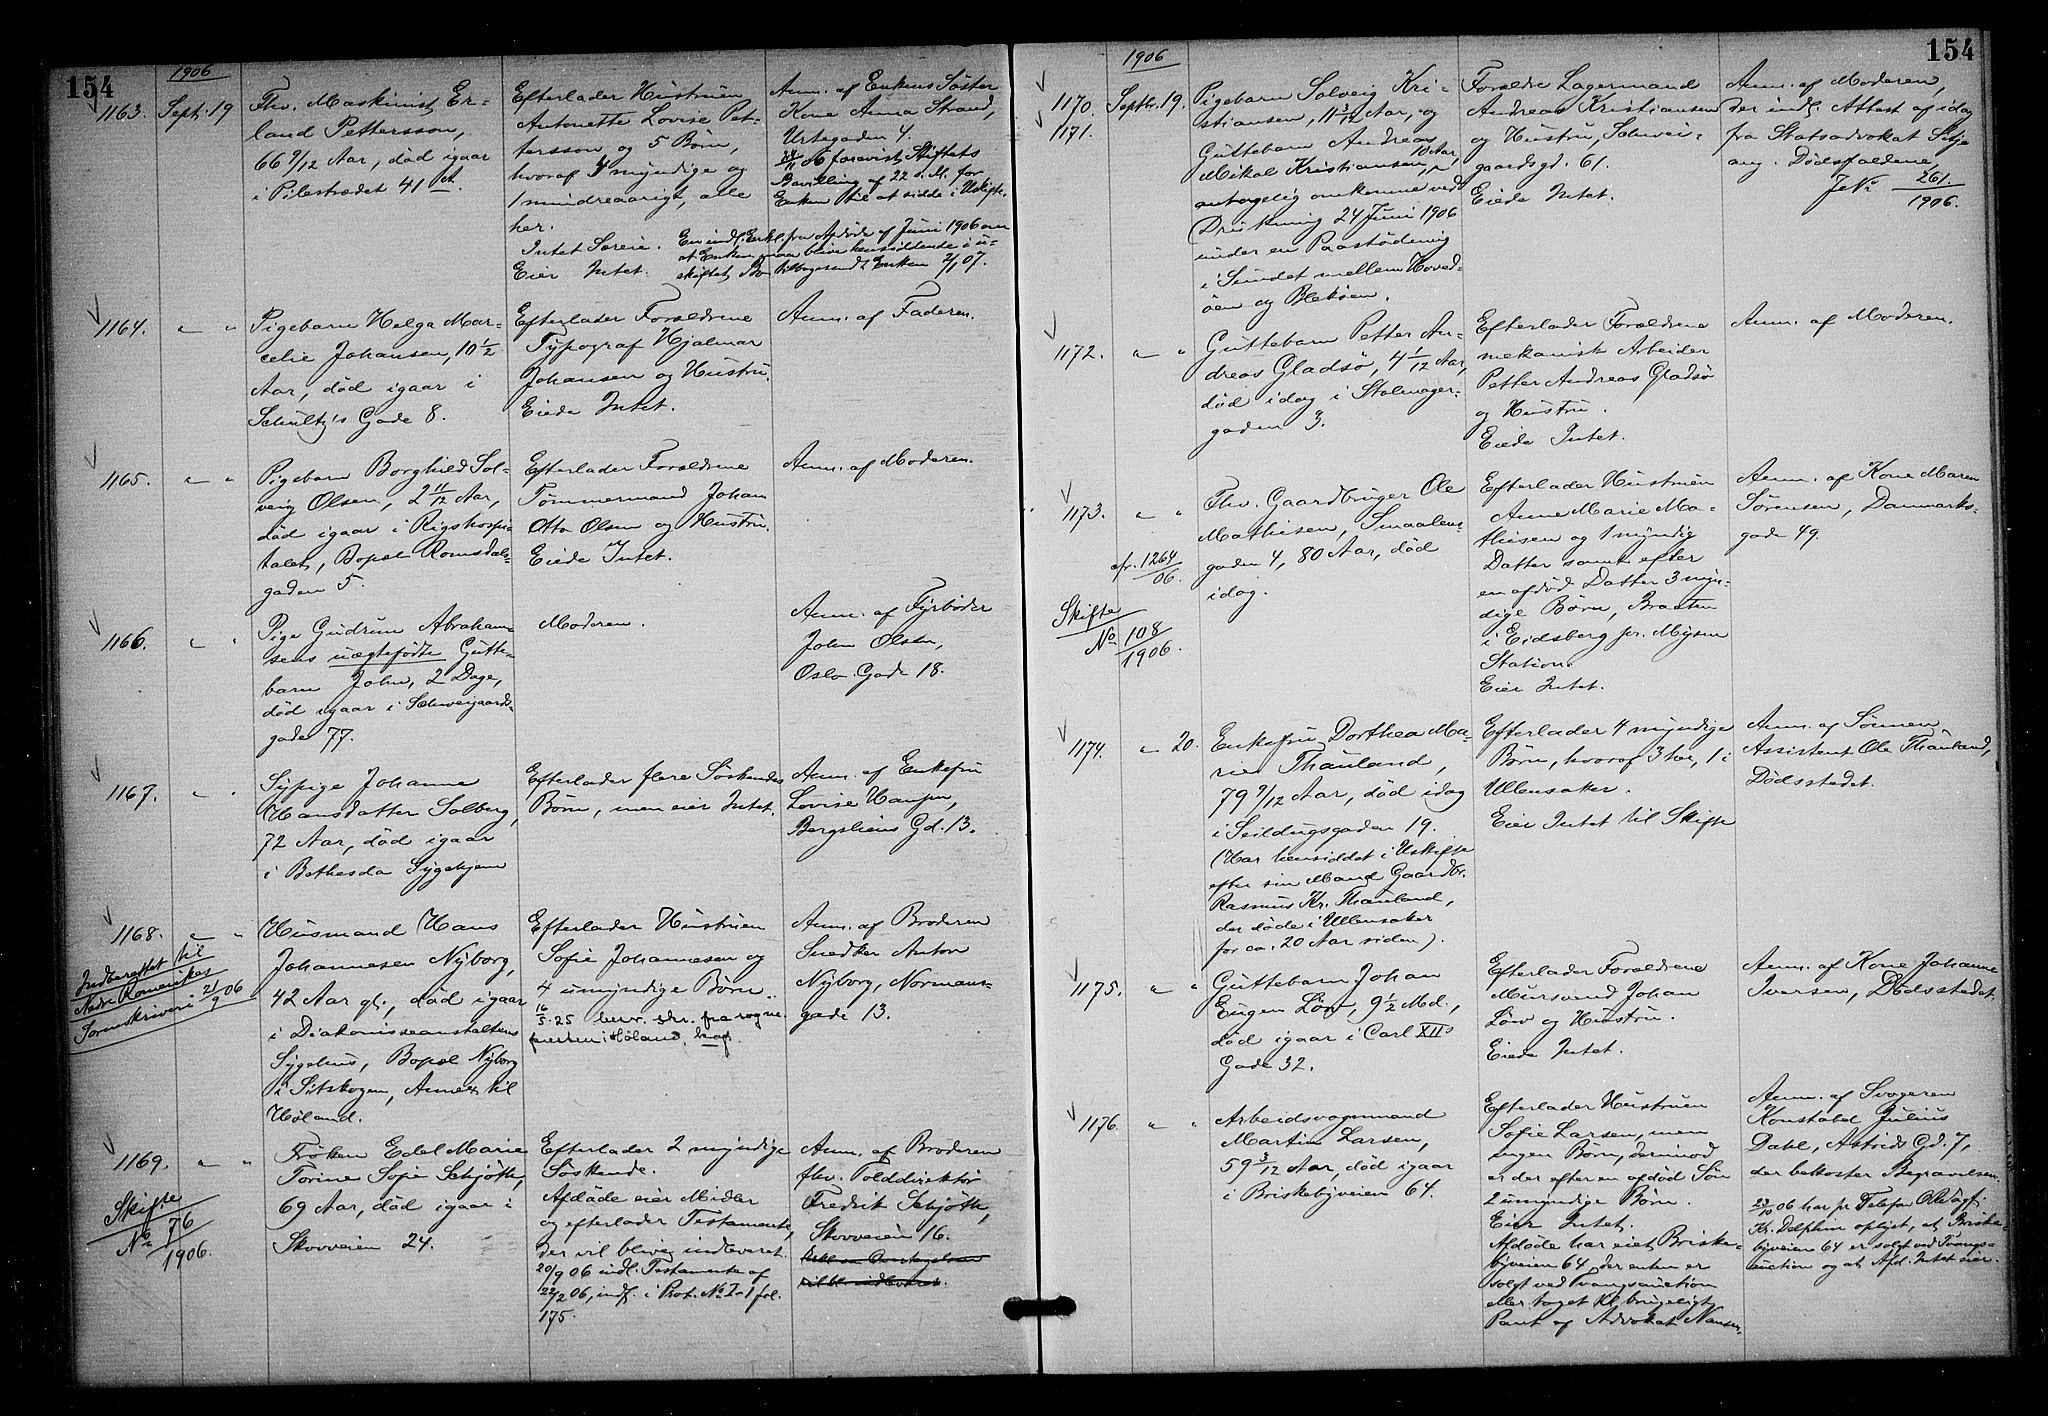 154
1906
1163. Sept. 19
Fhv. Maskinist Er-
land Pettersson,
66 9/12 Aar, død igaar
i Pilestrædet 41
Efterlader Hustruen
Antonette Lovise Pet-
tersson og 5 Børn,
hvoraf 4 myndige og
1 mindreaarigt, alle
her.
Intet Særeie.
Eier Intet.
Anm. af Enkens Søster
Kone Anna Strand,
Urtegaden 4.
forevist Stiftets
Bevilling af 22 s. M. for
Enken til at sidde i Uskifte.
En indl. Erkl. fra Afdøde af Juni 1906 om
at Enken maa blive hensiddende i u-
skiftet Bo tilbagesendt Enken 2/1 07.
1164. " "
Pigebarn Helga Mar-
celie Johansen, 10 1/2
Aar, død igaar i
Schultz's Gade 8.
Efterlader Forældrene
Typograf Hjalmar
Johansen og Hustru.
Eiede Intet.
Anm. af Faderen.
1165. " "
Pigebarn Borghild Sol-
veig Olsen, 2 11/12 Aar,
død igaar i Rigshospi-
talet, Bopæl Romsdals-
gaden 5.
Efterlader Forældrene
Tømmermand Johan
Otto Olsen og Hustru.
Eiede Intet.
Anm. af Moderen.
1166. " "
Pige Gudrun Abraham-
sens uægtefødte Gutte-
barn John, 2 Dage,
død igaar i Schweigaards-
gade 77.
Moderen.
Anm. af Fyrbøder
John Olsen,
Oslo Gade 18.
1167. " "
Sypige Johanne
Hansdatter Solberg,
72 Aar, død igaar
i Bethesda Sygehjem
Efterlader flere Søskendes
Børn, men eier Intet.
Anm. af Enkefru
Lovise Hansen,
Bergsliens Gd. 13.
1168. " "
Indberettet til
Nedre Romerikes
Sorenskriveri 21/9 06
Husmand Hans
Johannesen Nyborg,
42 Aar gl., død igaar
i Diakonisseanstaltens
Sygehus, Bopæl Nyborg
i Sitskogen, Annex til
Høland.
Efterlader Hustruen
Sofie Johannesen og
4 umyndige Børn.
16/5.25 besv. skr. fra sogne-
presten i Høland,
Anm. af Broderen
Snedker Anton
Nyborg, Normans-
gade 13.
1169. " "
Skifte
No 76/1906.
Frøken Edel Marie
Torine Sofie Schjøth,
69 Aar, død igaar i
Skovveien 24.
Efterlader 2 myndige
Søskende.
Afdøde eier Midler
og efterlader Testamente,
der vil blive indleveret.
20/9 06 indl. Testamente af
22/2 06, indf. i Prot. No I-1 fol.
175.
Anm. af Broderen
fhv. Tolddirektør
Fredrik Schjøth,
Skovveien 16.
154
1906
1170. Septbr. 19.
1171.
Pigebarn Solveig Kri-
stiansen, 11 3/12 Aar, og
Guttebarn Andreas
Mikal Kristiansen, 10 Aar,
antagelig omkomne ved
Drukning 24 Juni 1906
under en Paastødning
i Sundet mellem Hoved-
øen og Blekøen.
Forældre Lagermand
Andreas Kristiansen
og Hustru, Schwei-
gaardsgd. 61.
Eiede Intet.
Anm. af Moderen,
der indl. Attest af idag
fra Statsadvokat
ang. Dødsfaldene,
JNo 261./1906.
1172. " "
Guttebarn Petter An-
dreas Gladsø, 4 1/12 Aar,
død idag i Stolmager-
gaden 3.
Efterlader Forældrene
mekanisk Arbeider
Petter Andreas Gladsø
og Hustru.
Eiede Intet.
Anm. af Moderen.
1173. " "
cfr. 1264/06.
Skifte
No 108/1906.
Fhv. Gaardbruger Ole
Mathisen, Smaalens-
gaden 4, 80 Aar, død
idag.
Efterlader Hustruen
Anne Marie Ma-
thisen og 1 myndig
Datter samt efter
en afdød Datter 3 myn-
dige Børn, Braaten
i Eidsberg pr. Mysen
Station.
Eier Intet.
Anm. af Kone Maren
Sørensen, Danmarks-
gade 49.
1174. " 20.
Enkefru Dorthea Ma-
rie Thauland,
79 9/12 Aar, død idag
i Seildugsgaden 19.
(Har hensiddet i Uskifte
efter sin Mand Gaardbr.
Rasmus Kr. Thauland,
der døde i Ullensaker
for ca. 20 Aar siden).
Efterlader 4 myndige
Børn, hvoraf 3 her, 1 i
Ullensaker.
Eier Intet til Skifte
Anm. af Sønnen
Assistent Ole Thauland,
Dødsstedet.
1175. " "
Guttebarn Johan
Eugen Löw, 9 1/2 Md.,
død igaar i Carl XIIs
Gade 32.
Efterlader Forældrene
Mursvend Johan
Löw og Hustru.
Eiede Intet.
Anm. af Kone Johanne
Iversen, Dødsstedet.
1176. " "
Arbeidsvognmand
Martin Larsen,
59 3/12 Aar, død igaar
i Briskebyveien 64.
Efterlader Hustruen
Sofie Larsen, men
ingen Børn, derimod
er der efter en afdød Søn
2 umyndige Børn.
Eier Intet.
Afdøde har eiet Briske-
byveien 64, der enten er
solgt ved Tvangsauction
eller taget til brugeligt
Pant af Advokat Nansen.
Anm. af Svogeren
Konstabel Julius
Dahl, Astrids Gd. 7,
der bekoster Begravelsen.
23/10 06 har pr Telefon
Kr. Delphin oplyst, at Briske-
byveien 64 er solgt ved Tvangs-
auction og at Afd. Intet eier.